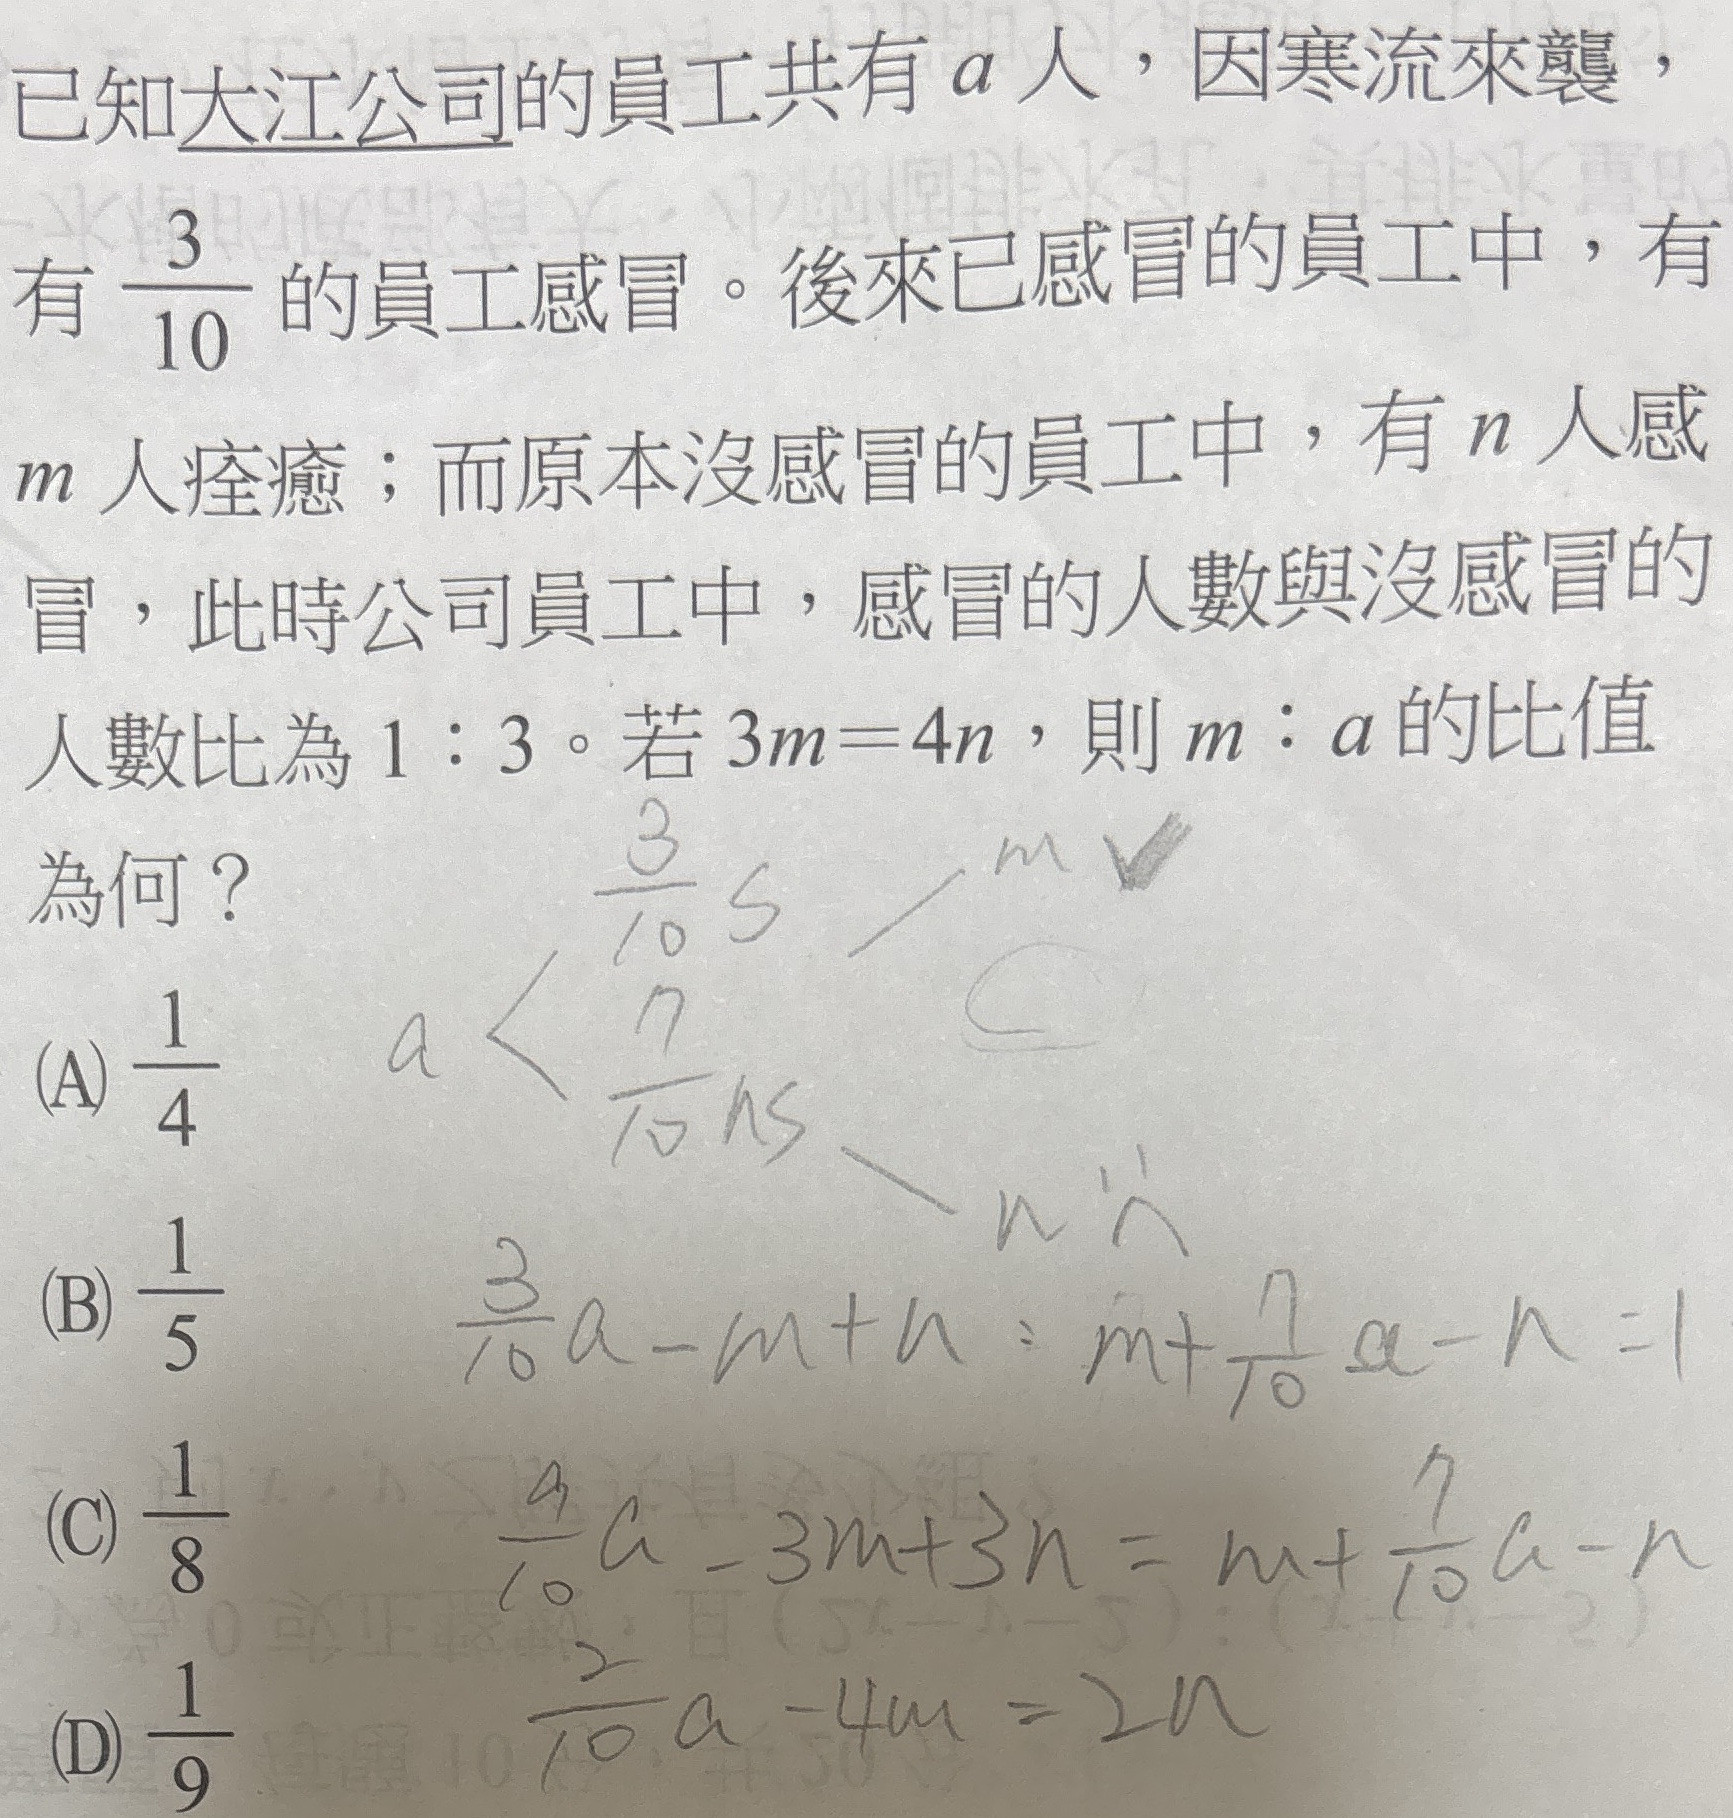 已知大江公司的員工共有 a 人，因寒流來襲，
有 3/10 的員工感冒。後來已感冒的員工中，有
m 人痊癒；而原本沒感冒的員工中，有 n 人感
冒，此時公司員工中，感冒的人數與沒感冒的
人數比為 1：3。若 3m＝4n，則 m：a 的比值
為何？
3/10 s m ✔
a <
7/10 ns
n
(A) 1/4
(B) 1/5
3/10 a - m + n : m + 7/10 a - n = 1
(C) 1/8
9/10 a - 3m + 3n = m + 7/10 a - n
(D) 1/9
2/10 a - 4m = 2n